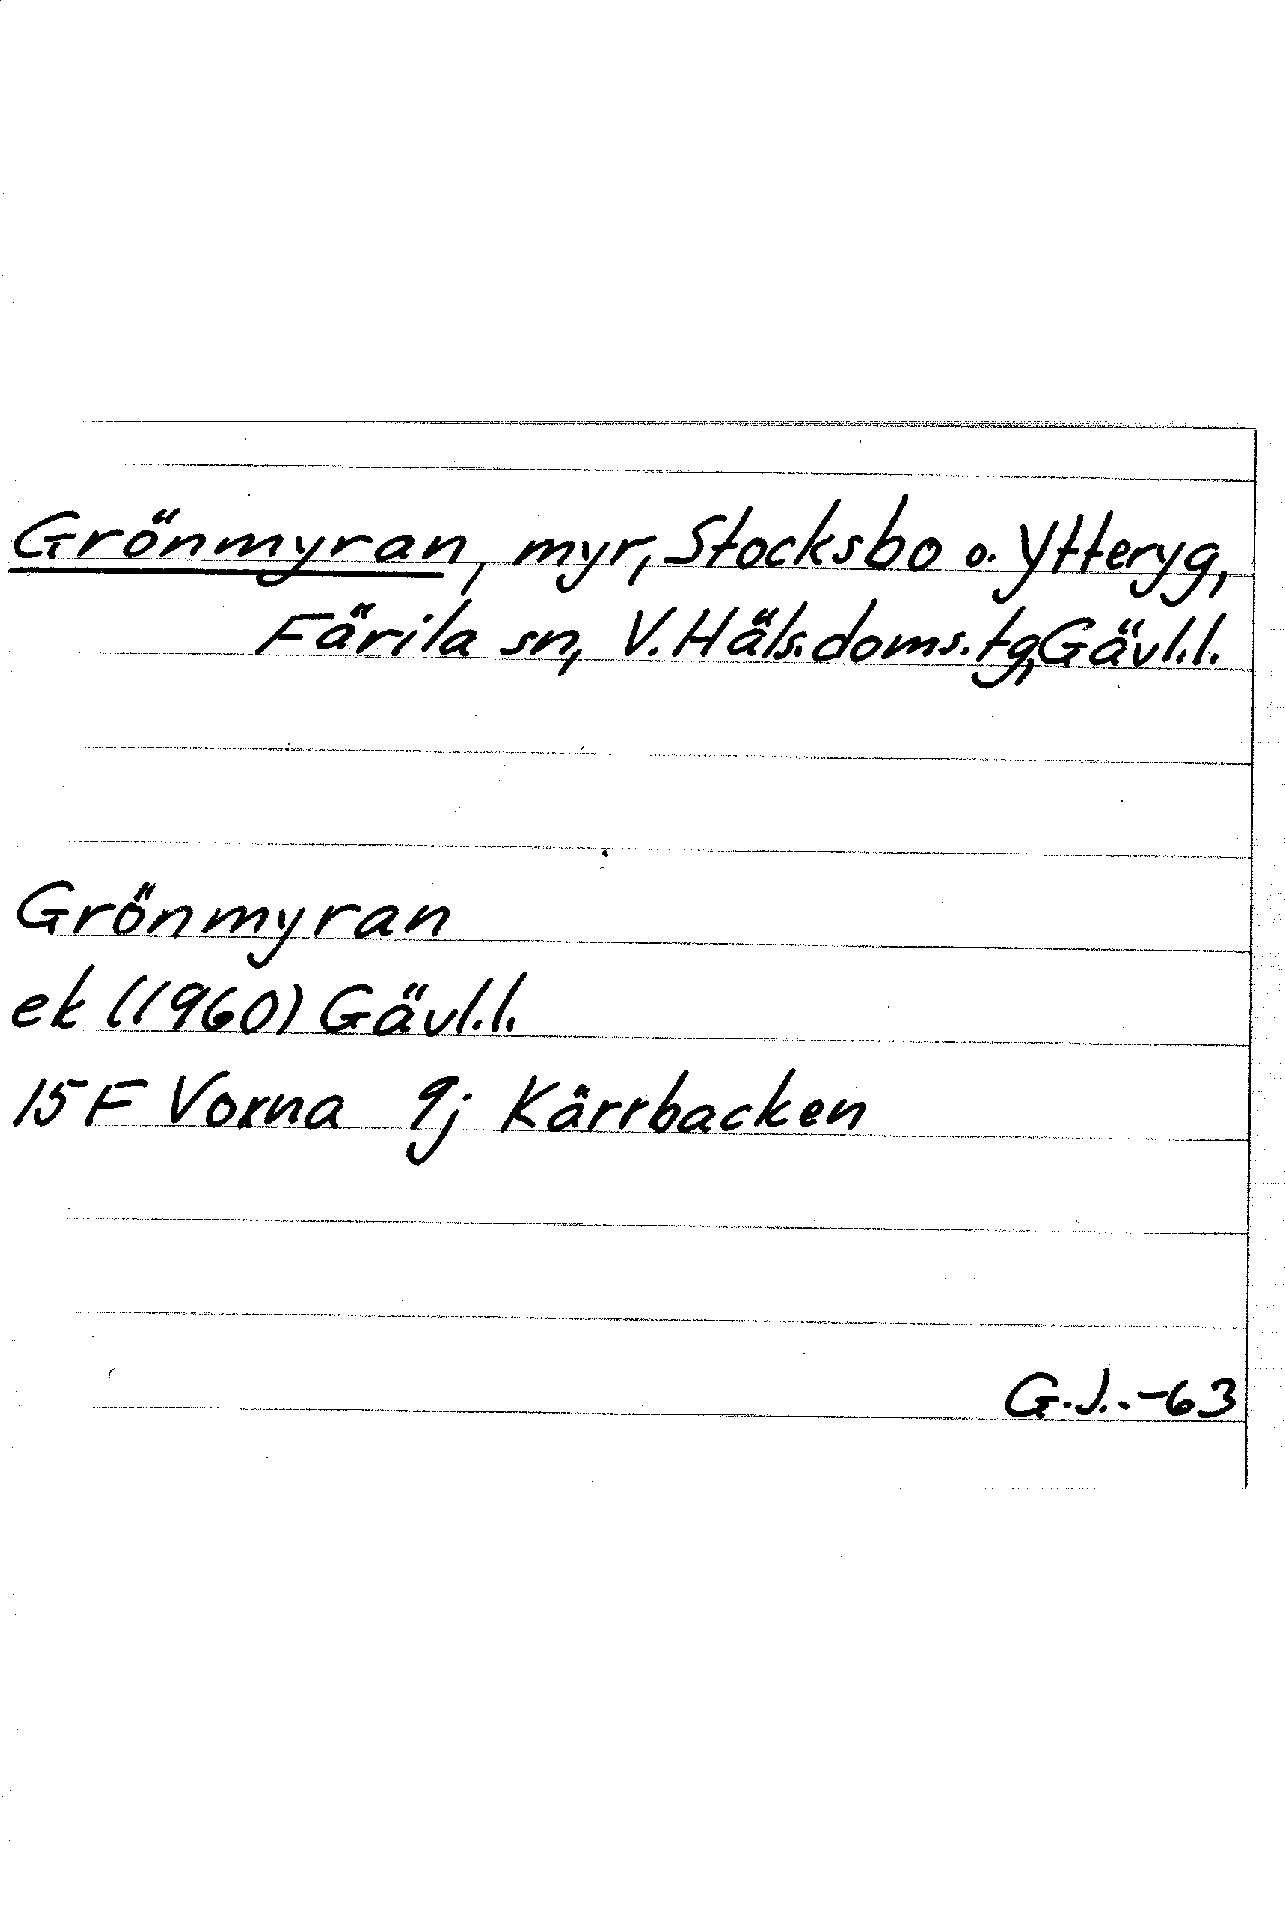 Grönmyran, myr, Stocksbo o. Ytteryg,
Färila sn, V. Häls. doms. tg, Gävl.l.
Grönmyran
ek (1960) Gävl.l.
15 F Voxna 9j Kärrbacken
G.J..-63